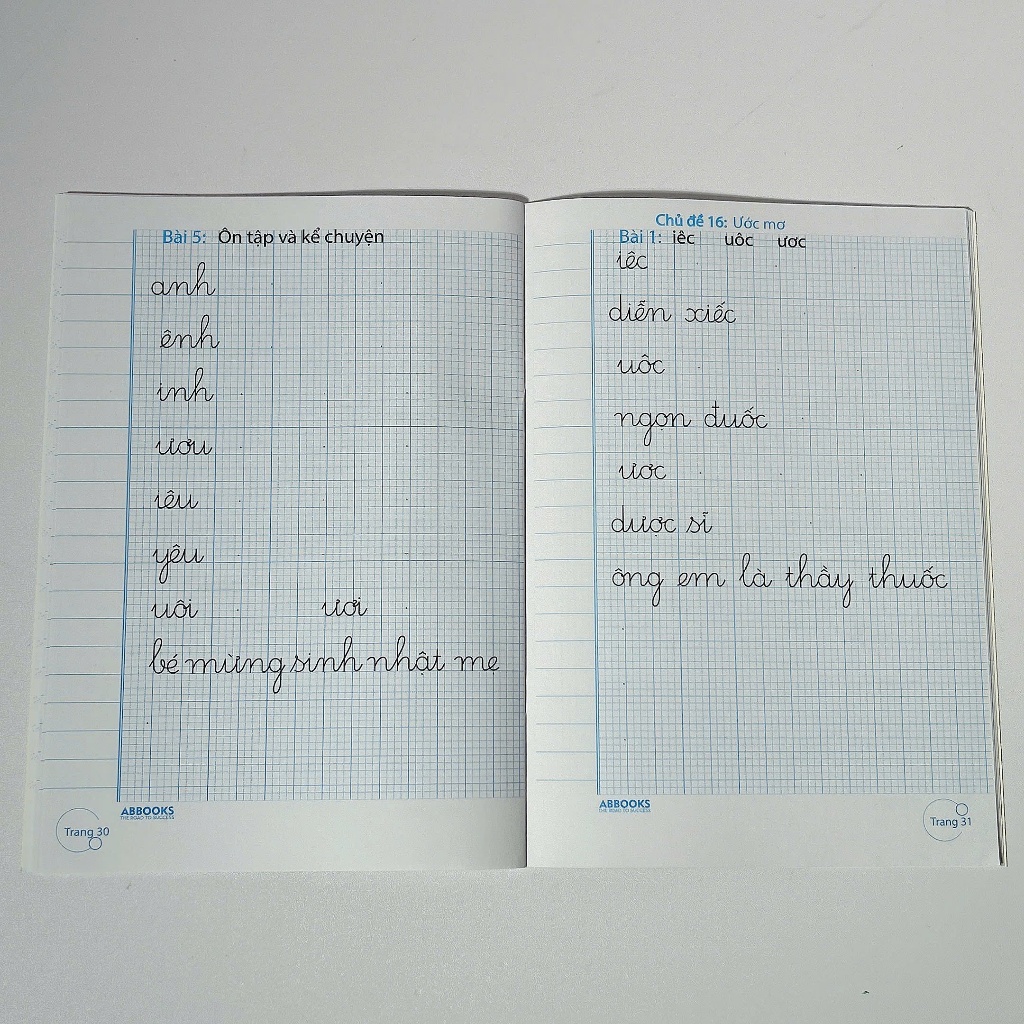 Bài 5: Ôn tập và kể chuyện
anh
ênh
inh
ươu
iêu
yêu
uôi ươi
bé mừng sinh nhật mẹ
ABBOOKS
THE ROAD TO SUCCESS
Trang 30
Chủ đề 16: Ước mơ
Bài 1: iêc uôc ươc
iêc
diễn xiếc
uôc
ngọn đuốc
ươc
dược sĩ
ông em là thầy thuốc
ABBOOKS
THE ROAD TO SUCCESS
Trang 31